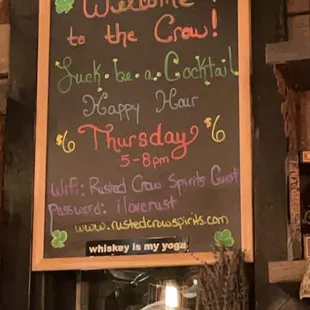 Welcome
to the Crow!
Luck·be·a·Cocktail
Happy Hour
$6 Thursday $6
5-8pm
Wifi: Rusted Crow Spirits Guest
Password: iloverust
www.rustedcrowspirits.com
whiskey is my yoga